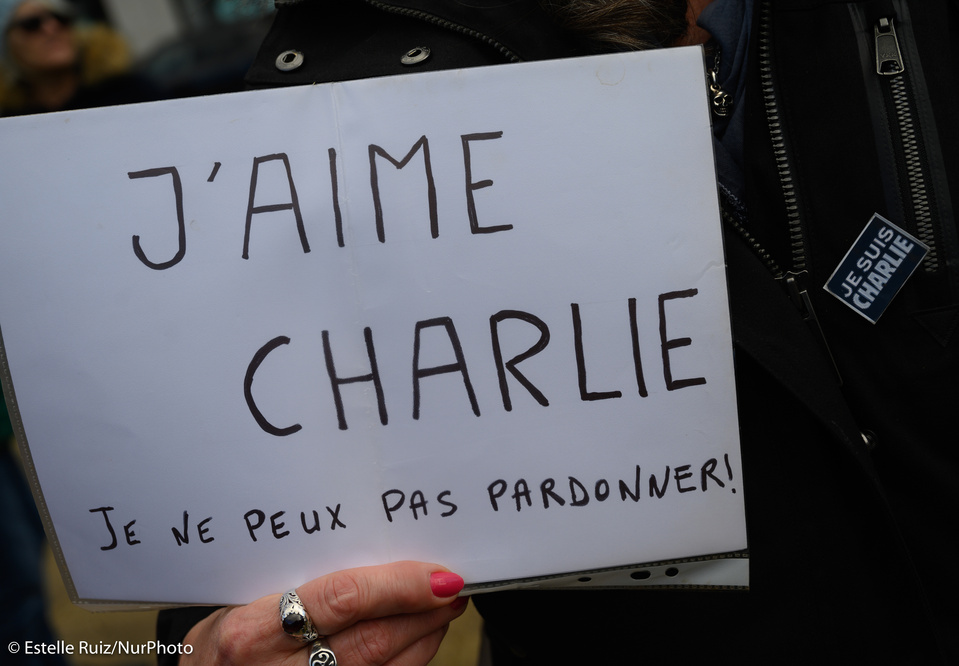 J'AIME
CHARLIE
JE NE PEUX PAS PARDONNER!
JE SUIS
CHARLIE
© Estelle Ruiz/NurPhoto